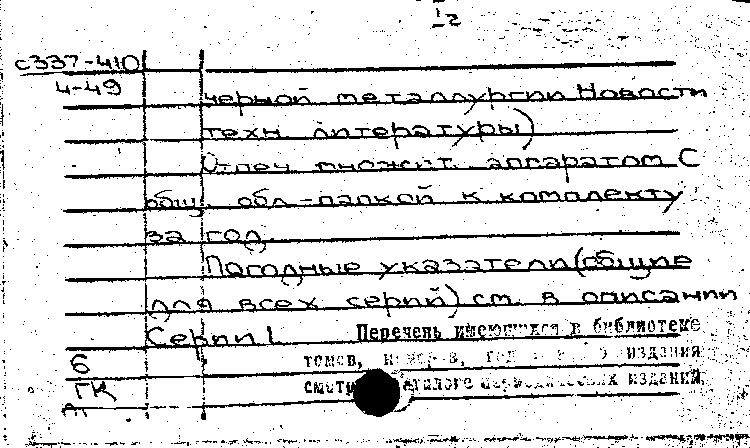 1/2
с337-410
4-49
черной металлургии. Новости
техн. литературы)
Отпеч. множит. аппаратом. С
общ. обл.-папкой к комплекту
за год.
Погодные указатели (общие
для всех серий) см. в описании
Серии 1.
Перечень имеющихся в библиотеке
томов, издания
смотри каталоге периодических изданий.
б
ГК